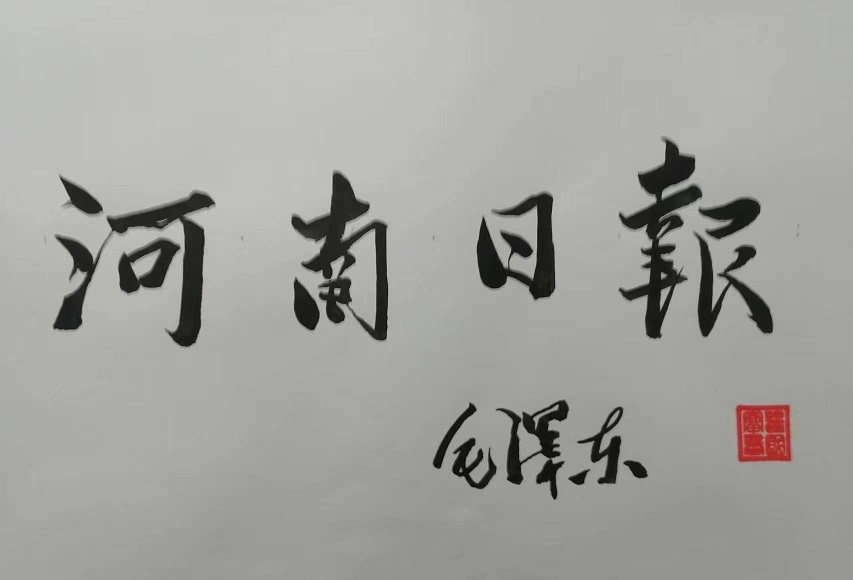 河南日報
毛澤东